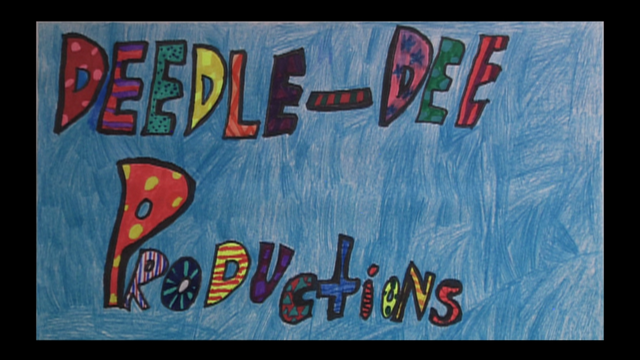 DEEDLE-DEE
PRODUCTIONS